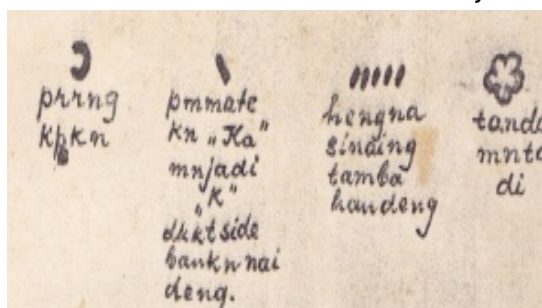 prrng
kpkn
pmmate
kn „Ka"
mnjadi
„K"
dkkt side
bankn nai
deng.
hengna
sinaing
tamba
haudeng
tando
mnto
di